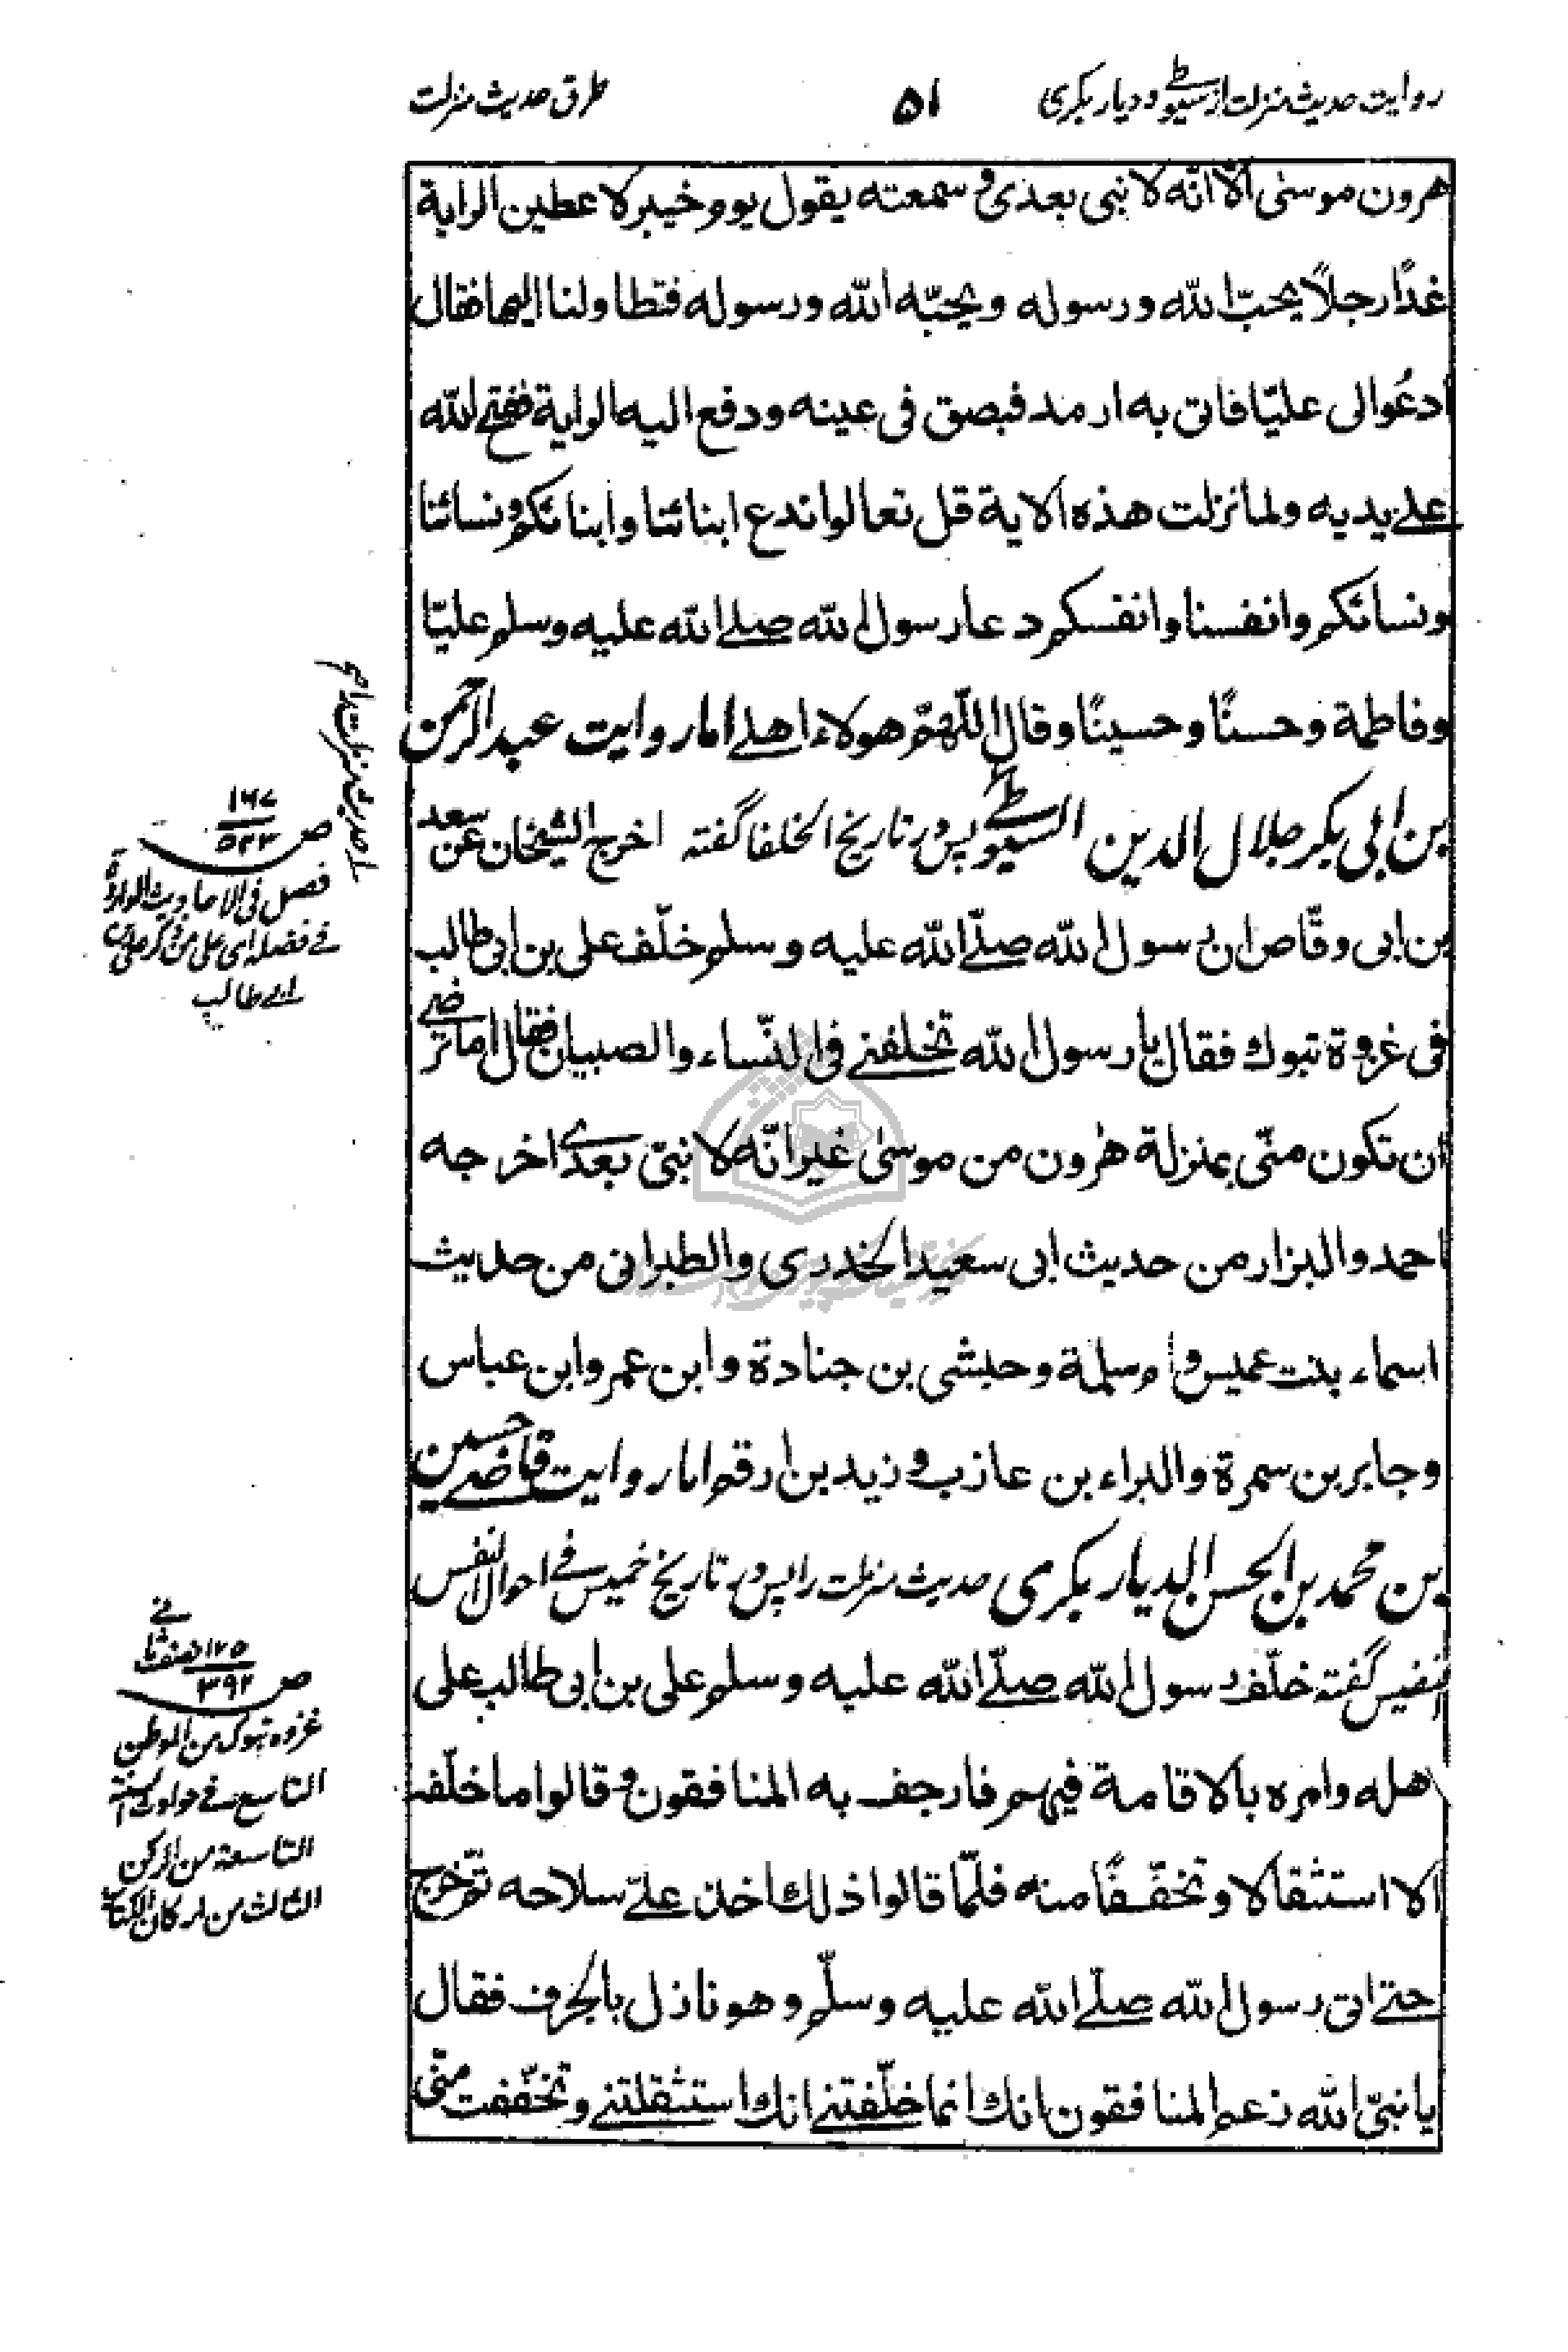 روایت حدیث منزلت از سیوطے و دیار بکری
۵۱
طرق حدیث منزلت
هرون موسیٰ الّا انّه لا نبی بعدی و سمعته یقول یوم خیبر لاعطین الرایة
غدًا رجلاً یحبّ الله ورسوله ویحبّه الله ورسوله فتطاولنا الیها فقال
ادعُوا لی علیّا فاتی به ارمد فبصق فی عینه ودفع الیه الرایة ففتح الله
علے یدیه ولما نزلت هذه الایة قل تعالوا ندع ابنائنا وابنائکم ونسائنا
ونسائکم وانفسنا وانفسکم دعا رسول الله صلے الله علیه وسلم علیّا
وفاطمة وحسنًا وحسینًا وقال اللّهمّ هولاء اهلے اما روایت عبد الرحمن
بن ابی بکر جلال الدین السیوطے پس در تاریخ الخلفا گفته اخرج الشیخان عن سعد
بن ابی وقّاص ان رسول الله صلّے الله علیه وسلم خلّف علی بن ابی طالب
فی غزوة تبوك فقال یا رسول الله تخلفنے فی النّساء والصبیان فقال اما ترضے
ان تکون منّی بمنزلة هٰرون من موسیٰ غیر انّه لا نبیّ بعدے اخرجه
احمد والبزار من حدیث ابی سعید الخدری والطبرانی من حدیث
اسماء بنت عمیس وام سلمة وحبشی بن جنادة وابن عمر وابن عباس
وجابر بن سمرة والبراء بن عازب وزید بن ارقم اما روایت قاضے حسین
بن محمد بن الحسن الدیار بکری حدیث منزلت را پس در تاریخ خمیس فے احوال انفس
النفیس گفته خلّف رسول الله صلّے الله علیه وسلم علی بن ابی طالب علی
اهله وامره بالاقامة فیهم فارجف به المنافقون وقالوا ما خلّفه
الا استثقالا وتخفّفًا منه فلمّا قالوا ذلك اخذ علےّ سلاحه ثمّ خرج
حتے اتی رسول الله صلّے الله علیه وسلّم وهو نازل بالجرف فقال
یا نبیّ الله زعم المنافقون انك انما خلّفتنے انك استثقلتنے وتخفّفت منّی
ص
فصل فی الاحادیث الواردة
فے فضله ای علی من ذکر علی بن
ابے طالب
ص ۳۹۲
غزوه تبوك من الموطن
التاسع فے حوادث السنة
التاسعة من الرکن
الثالث من ارکان الکتاب